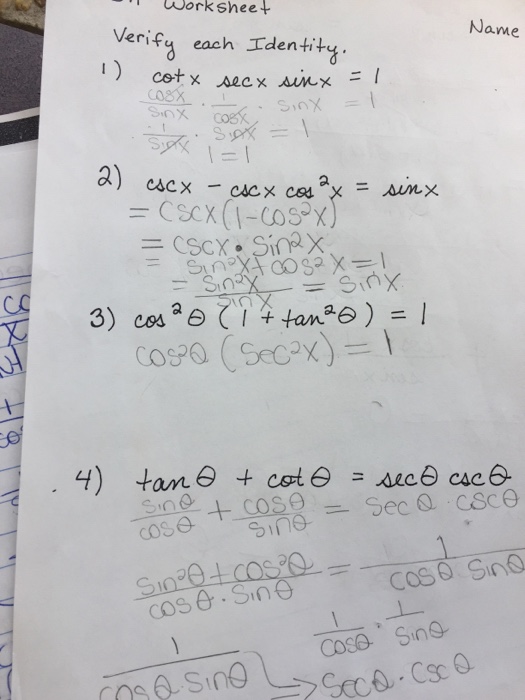 Worksheet
Name
Verify each Identity.
1) cot x sec x sin x = 1
cosx/sinx · 1/cosx · sinx = 1
1/sinx · sinx = 1
1 = 1
2) csc x - csc x cos²x = sin x
= cscx(1-cos²x)
= cscx • sin²x
= sin²x + cos²x = 1
= sin²x/sinx = sinx
3) cos²θ (1 + tan²θ) = 1
cos²θ (sec²x) = 1
4) tan θ + cot θ = sec θ csc θ
sinθ/cosθ + cosθ/sinθ = secθ · cscθ
sin²θ + cos²θ/cosθ · sinθ = 1/cosθ sinθ
1/cosθ · 1/sinθ
1/cosθ · sinθ → secθ · cscθ